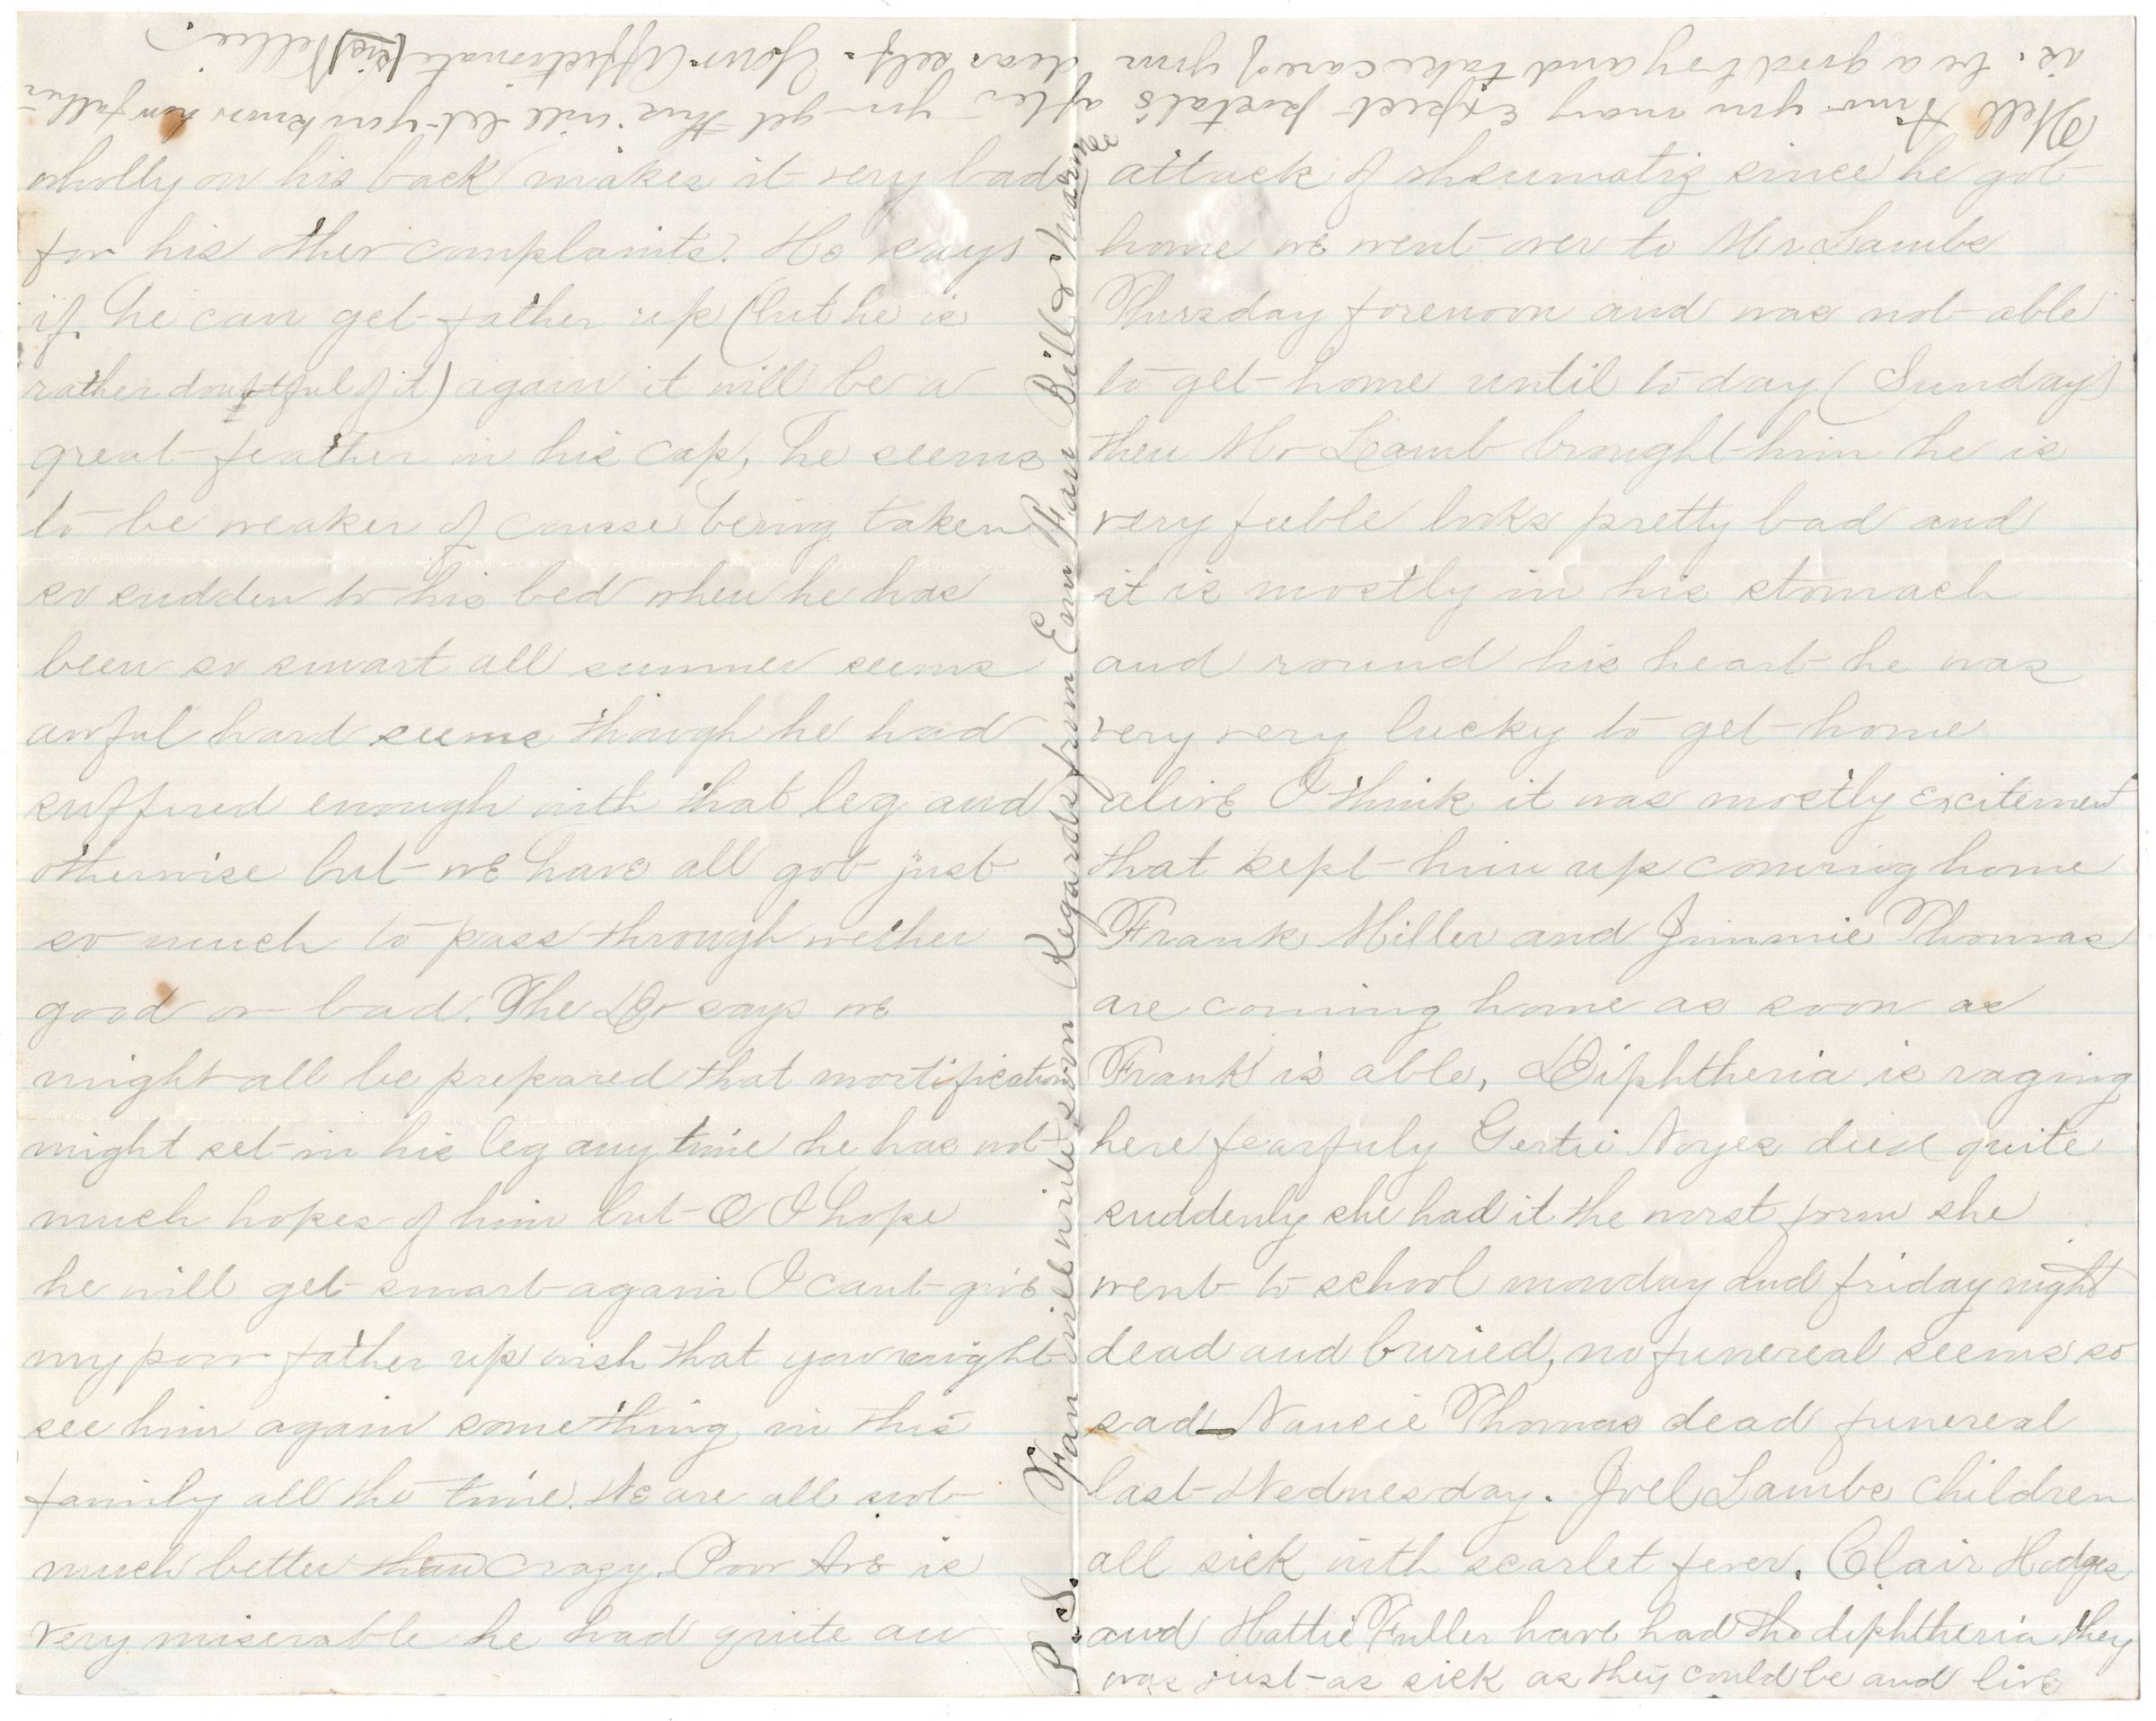 wholly on his back makes it very bad
for his other complaints. He says
if he can get father up (but he is
rather doubtful of it) again it will be a
great feather in his cap, he seems
to be weaker of course being taken
so sudden to his bed when he has
been so smart all summer seems
awful hard seems though he had
suffured enough with that leg and
otherwise but we have all got just
so much to pass through wether
good or bad. The Dr says we
might all be prepared that mortification
might set in his leg any time he has not
much hopes of him but O I hope
he will get smart again I cant give
my poor father up wish that you might
see him again something in this
family all the time. We are all not
much better than crazy. Poor Are is
very miserable he had quite an
attack of rheumatig since he got
home we went over to Mr Lambs
Thursday forenoon and was not able
to get home until to day (Sunday)
then Mr Lamb brought him he is
very feeble looks pretty bad and
it is mostly in his stomach
and round his heart he was
very very lucky to get home
alive I think it was mostly excitement
that kept him up comeing home
Frank Miller and Jimmie Thomas
are coming home as soon as
Frank is able, Diphtheria is raging
here fearfuly Gertie Noyes died quite
suddenly she had it the worst form she
went to school monday and friday night
dead and buried, no funereal seems so
sad Nancie Thomas dead funereal
last Wednesday. Joel Lambs children
all sick with scarlet fever. Clair Hodges
and Hattie Fuller have had the diphtheria they
was just as sick as they could be and live
Well you may expect postals after you get this will let you know how father
is. be a good boy and take care of your dear self. Your Affectionate (sis) Nellie.
P.S. Fan will write soon Regards from Em Fan Bill & Marm